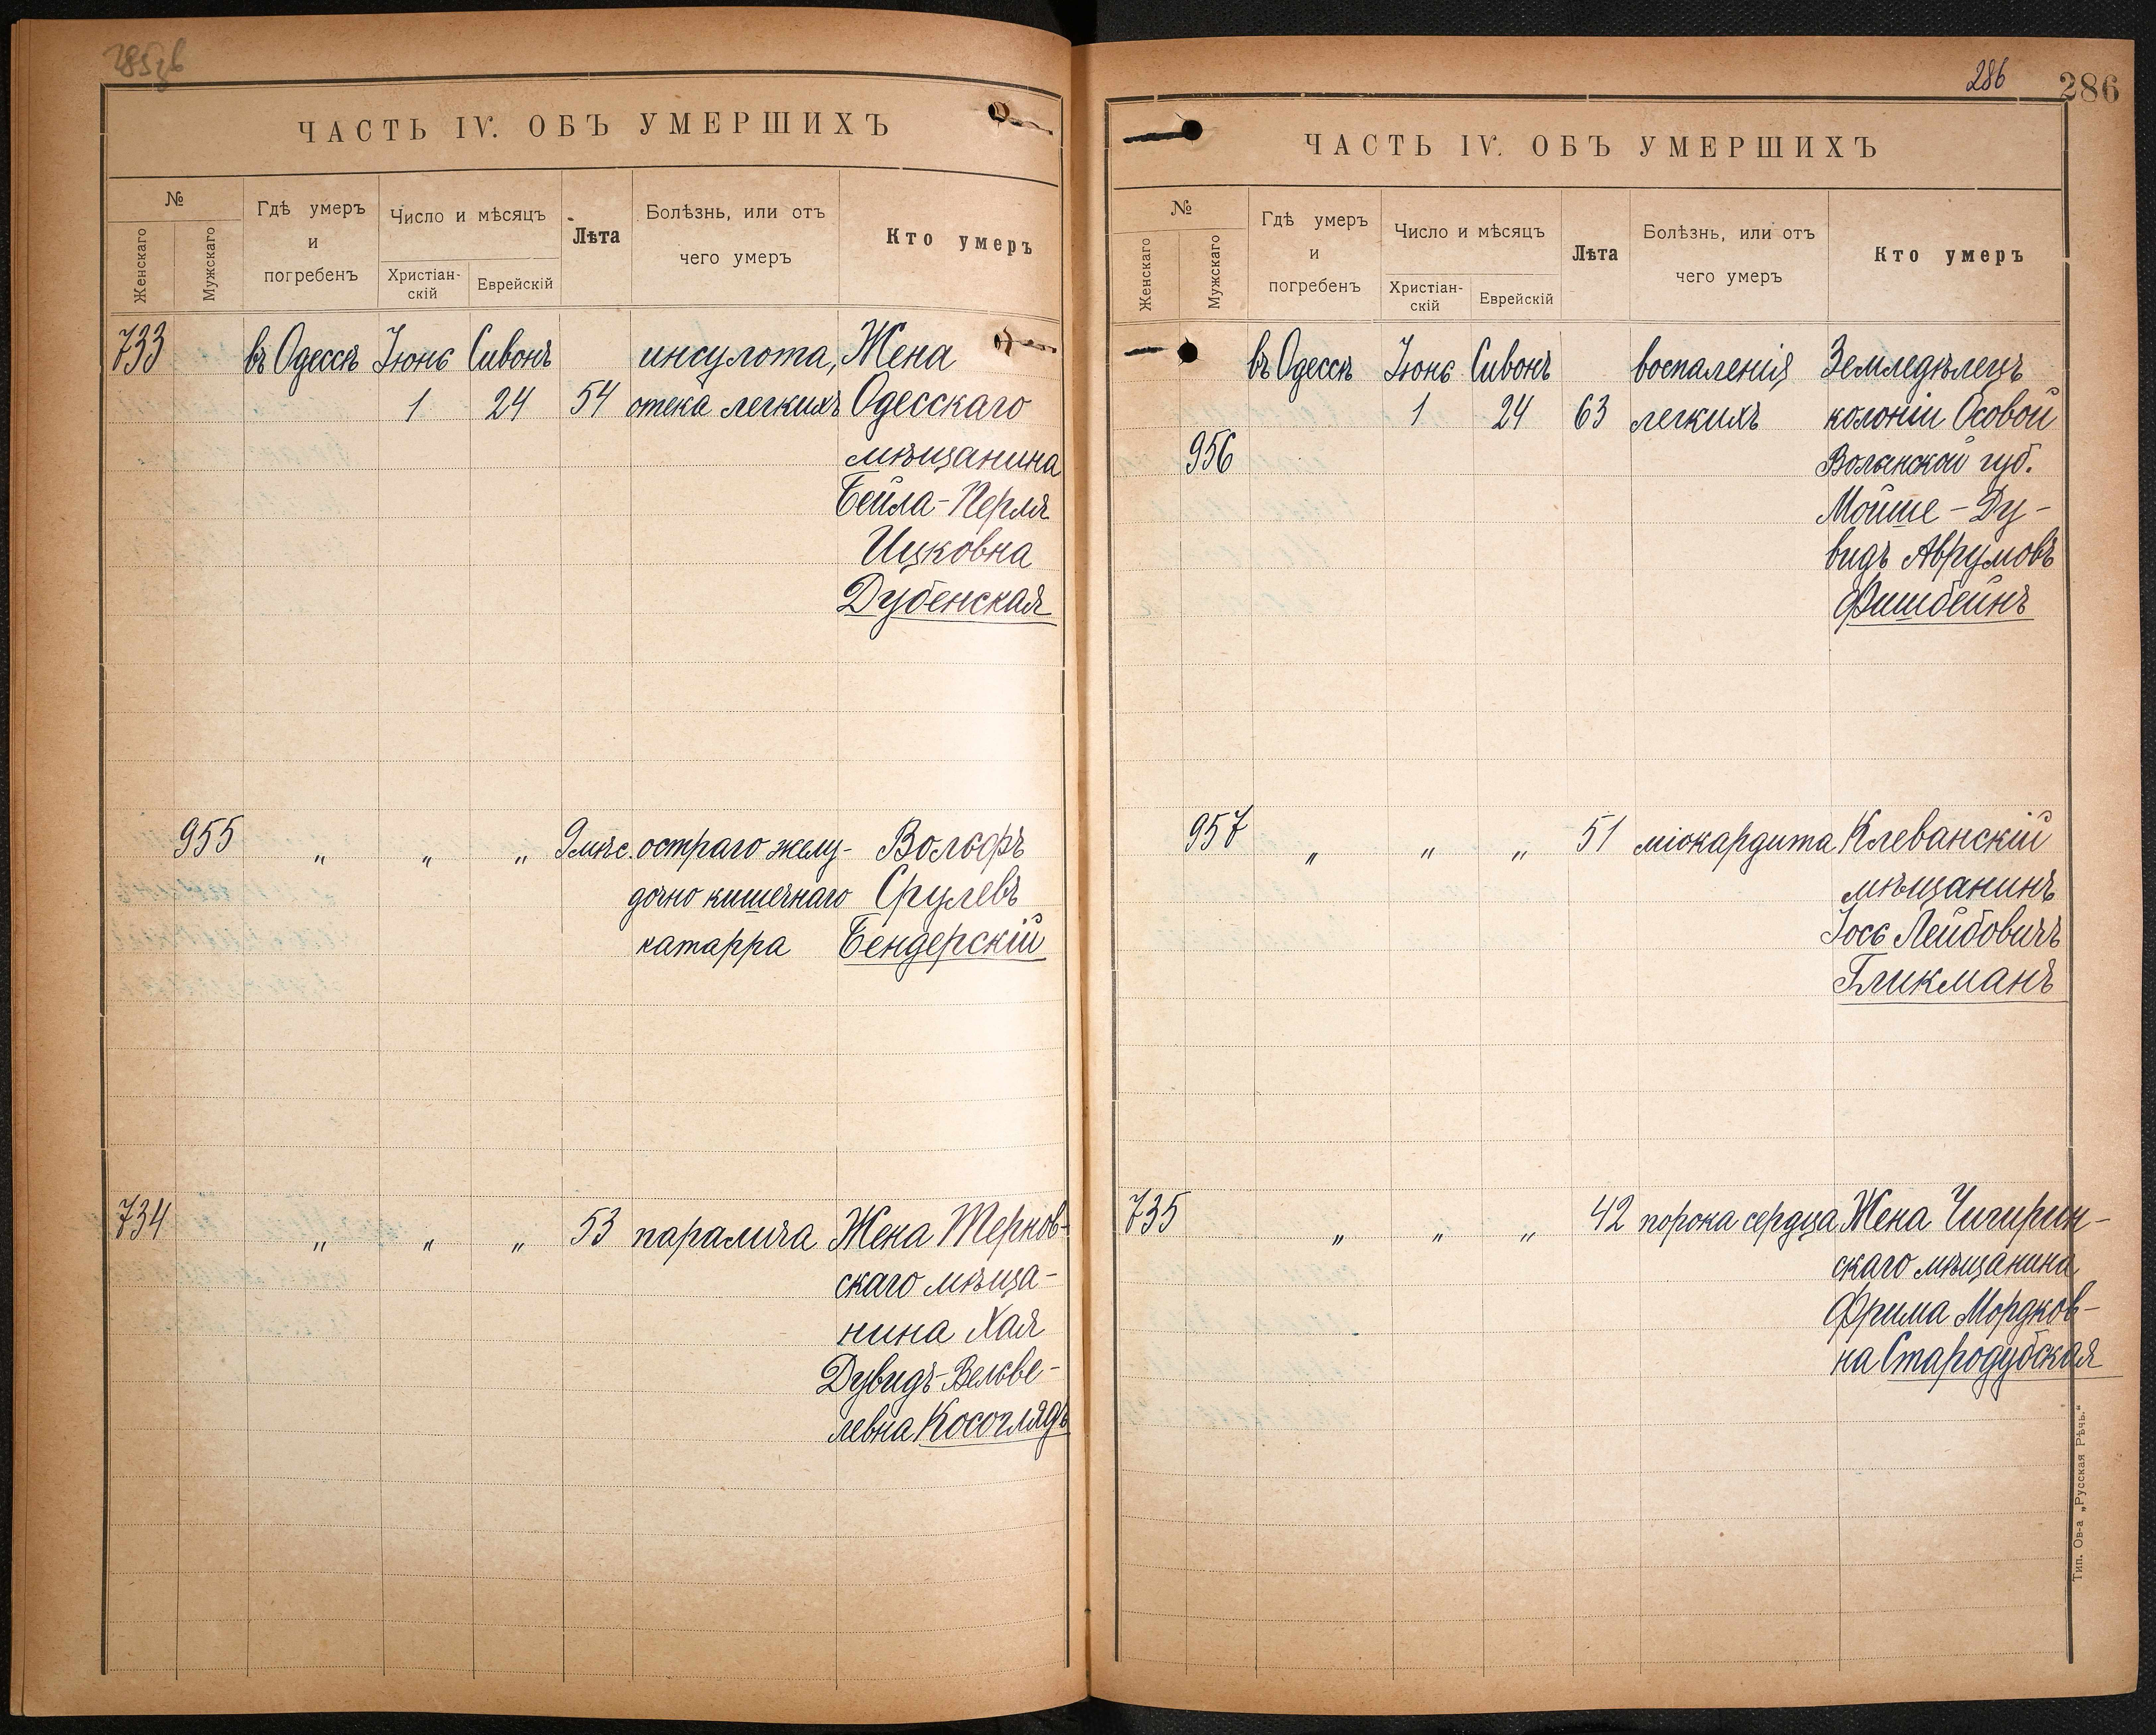 286
286
ЧАСТЬ IV. ОБЪ УМЕРШИХЪ
№
Женскаго
Мужскаго
Гдѣ умеръ
и
погребенъ
Число и мѣсяцъ
Христіан-
скій
Еврейскій
Лѣта
Болѣзнь, или отъ
чего умеръ
Кто умеръ
733 въ Одессѣ Іюнь Сивонъ инсулота, Жена
1 24 54 отека легкихъ Одесскаго
мѣщанина
Бейла-Перля
Ицковна
Дубенская
955 „ „ „ 9 мѣс. остраго желу- Вольфъ
дочно кишечнаго Срулевъ
катарра Бендерскій
734 „ „ „ 53 паралича Жена Тернов-
скаго мѣща-
нина Хая
Дувидъ-Вельве-
левна Косоглядъ
ЧАСТЬ IV. ОБЪ УМЕРШИХЪ
№
Женскаго
Мужскаго
Гдѣ умеръ
и
погребенъ
Число и мѣсяцъ
Христіан-
скій
Еврейскій
Лѣта
Болѣзнь, или отъ
чего умеръ
Кто умеръ
въ Одессѣ Іюнь Сивонъ воспаленія Земледѣлецъ
1 24 63 легкихъ колоніи Осовой
956 Волынской губ.
Мойше-Ду-
видъ Аврумовъ
Фишбейнъ
957 „ „ „ 51 міокардита Клеванскій
мѣщанинъ
Іось Лейбовичъ
Гликманъ
735 „ „ „ 42 порока сердца Жена Чигирин-
скаго мѣщанина
Фрима Мордков-
на Стародубская
Тип. Ов-а „Русская Рѣчь.“